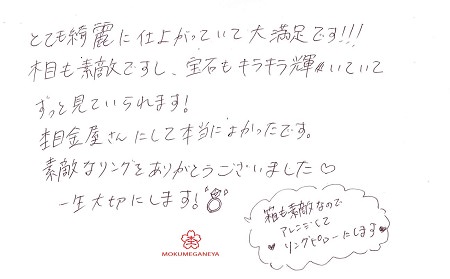 とても綺麗に仕上がっていて大満足です!!!
木目も素敵ですし、宝石もキラキラ輝いていて
ずっと見ていられます!
杢目金屋さんにして本当によかったです。
素敵なリングをありがとうございました♡
一生大切にします!
箱も素敵なので
アレンジして
♥リングピローにします♥
杢
MOKUMEGANEYA